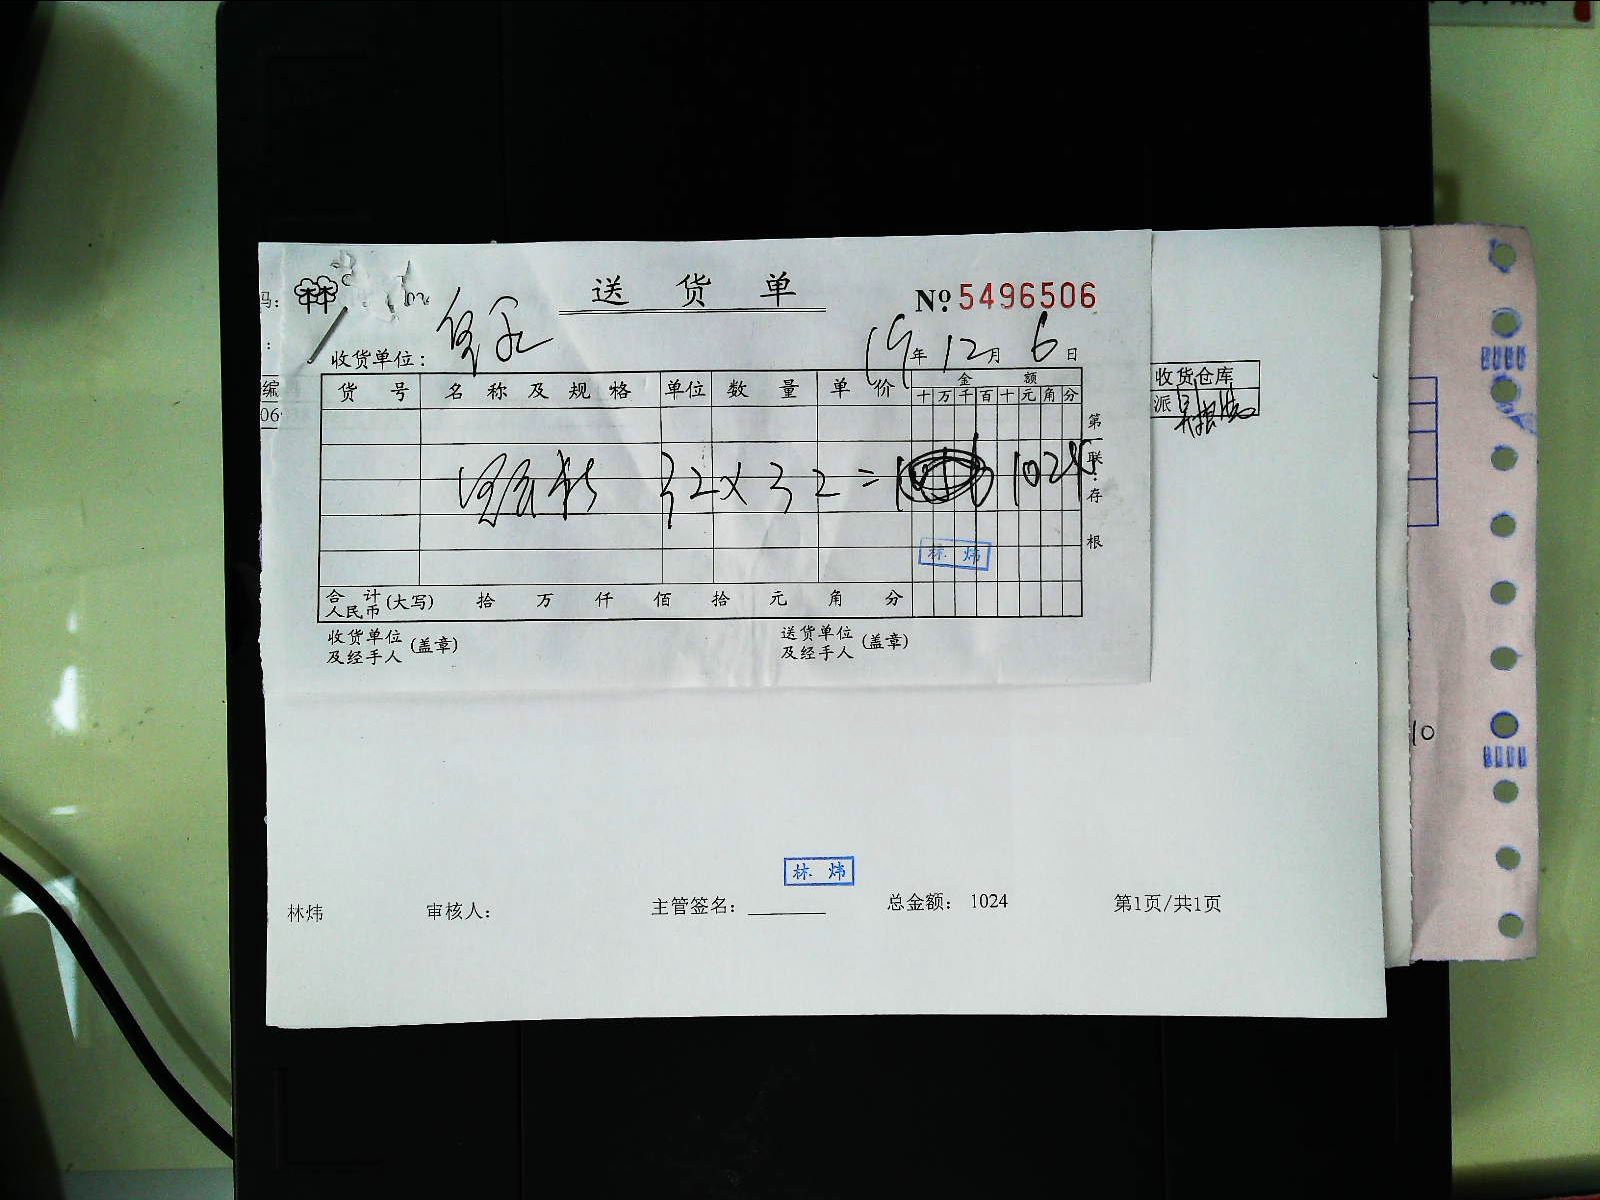 送 货 单
№ 5496506
码:
:
收货单位:
19年12月6日
编
06
货 号 名 称 及 规 格 单位 数 量 单 价 金 额
十 万 千 百 十 元 角 分
32×32= 1024
第 联:存 根
林 炜
合 计 人民币(大写) 拾 万 仟 佰 拾 元 角 分
收货单位及经手人(盖章) 送货单位及经手人(盖章)
收货仓库
派
10
林 炜
林炜 审核人: 主管签名: 总金额: 1024 第1页/共1页